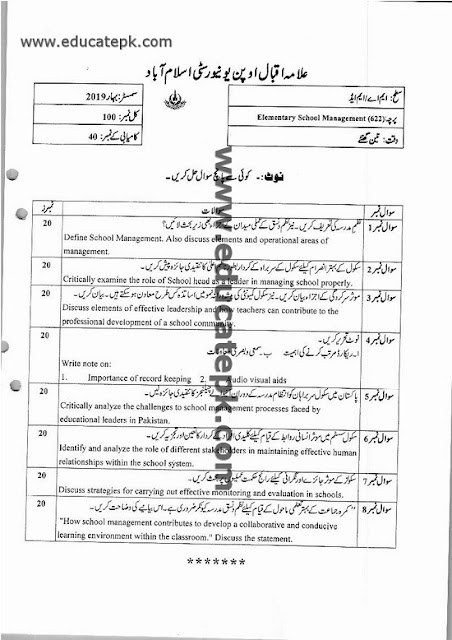 www.educatepk.com
علامہ اقبال اوپن یونیورسٹی اسلام آباد
سطح: ایم اے/ایم ایڈ
سمسٹر: بہار 2019
پرچہ: Elementary School Management (622)
کل نمبر: 100
وقت: تین گھنٹے
کامیابی کے نمبر: 40
نوٹ:۔ کوئی سے پانچ سوال حل کریں۔
سوال نمبر سوالات نمبر
سوال نمبر 1 نظم مدرسہ کی تعریف کریں۔ نیز نظم ونسق کے عملی میدان زیر بحث لائیں؟ 20
Define School Management. Also discuss elements and operational areas of
management.
سوال نمبر 2 سکول کے بہتر انصرام کیلئے سکول کے سربراہ کے کردار کا تنقیدی جائزہ پیش کریں۔ 20
Critically examine the role of School head as a leader in managing school properly.
سوال نمبر 3 موثر سرکردگی کے اجزاء بیان کریں۔ نیز سکول کمیونٹی کی میں اساتذہ کس طرح معاون ہو سکتے ہیں۔ بیان کریں۔ 20
Discuss elements of effective leadership and how teachers can contribute to the
professional development of a school community.
سوال نمبر 4 نوٹ تحریر کریں۔ 20
۱۔ ریکارڈ مرتب کرنے کی اہمیت ب۔ سمعی و بصری معاونات
Write note on:
1. Importance of record keeping 2. Audio visual aids
سوال نمبر 5 پاکستان میں سکول سربراہان کو انتظام مدرسہ کے دوران چیلنجز کا تنقیدی جائزہ لیں۔ 20
Critically analyze the challenges to school management processes faced by
educational leaders in Pakistan.
سوال نمبر 6 سکول سسٹم میں موثر انسانی روابط کے قیام کیلئے کلیدی افراد کے کردار کا تعین اور تجزیہ کریں۔ 20
Identify and analyze the role of different stakeholders in maintaining effective human
relationships within the school system.
سوال نمبر 7 سکولز کے موثر جائزے اور نگرانی کیلئے رائج حکمت عملیوں پر بحث کریں۔ 20
Discuss strategies for carrying out effective monitoring and evaluation in schools.
سوال نمبر 8 "کمرہ جماعت کے بہتر تعلمی ماحول کے قیام کیلئے نظم ونسق مدرسہ کیونکر ضروری ہے۔ اس بیانیے کی وضاحت کریں۔ 20
"How school management contributes to develop a collaborative and conducive
learning environment within the classroom." Discuss the statement.
*******
www.educatepk.com